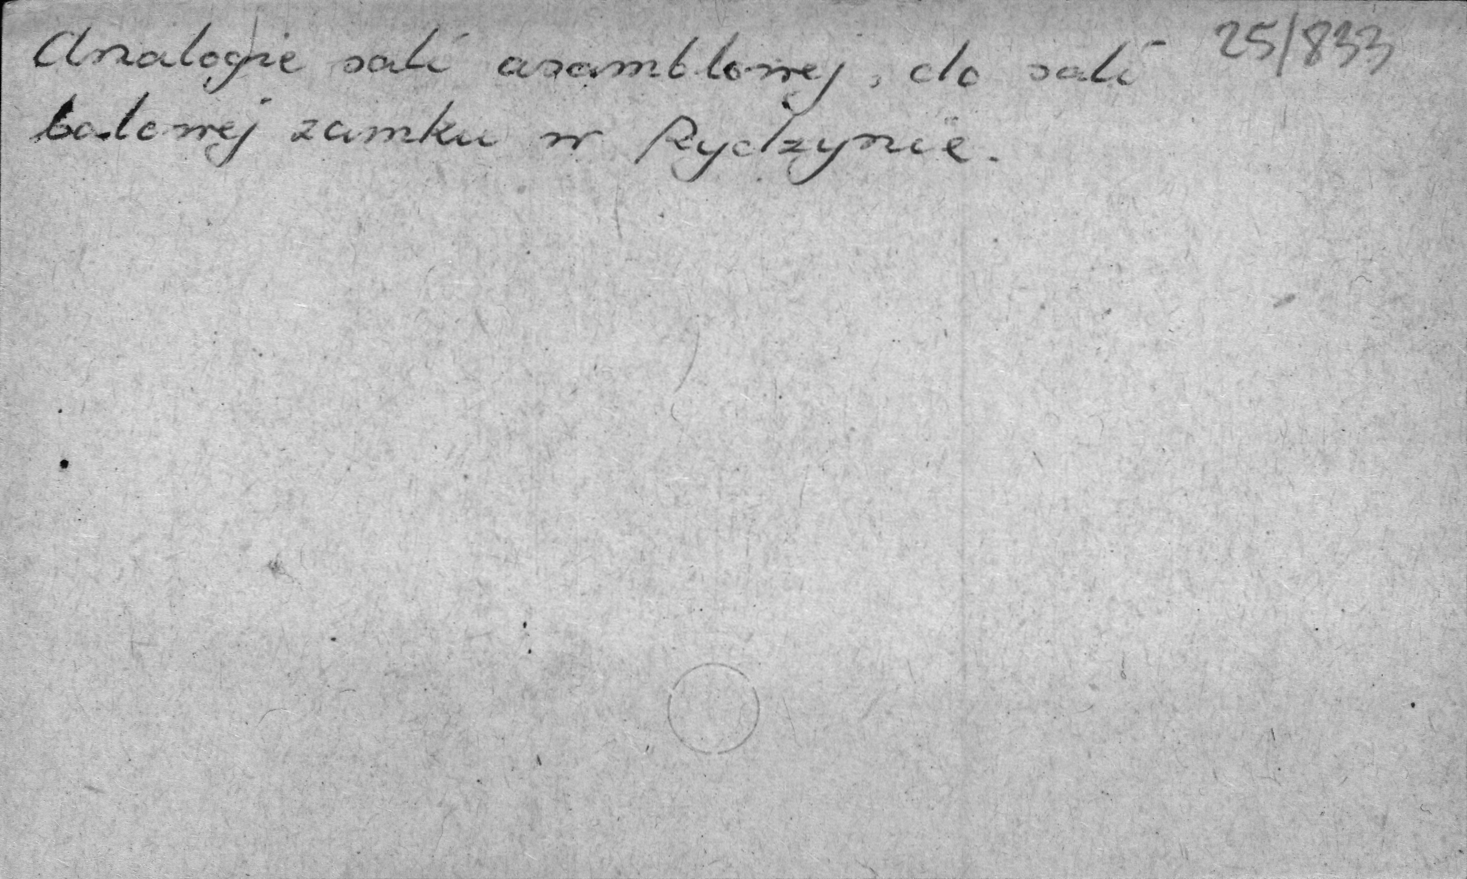 Analogie sali asamblowej, do sali 25/833
balowej zamku w Rydzynie.